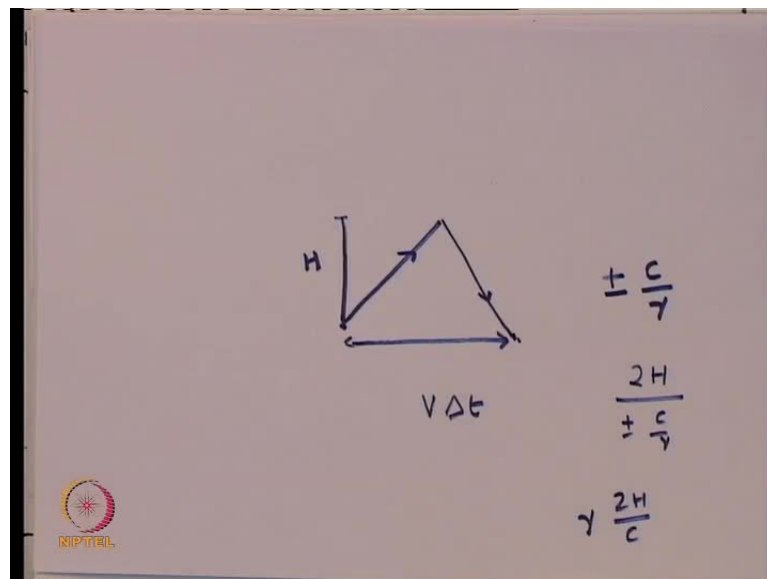 H
V Δt
± c/γ
2H / ± c/γ
γ 2H/c
NPTEL